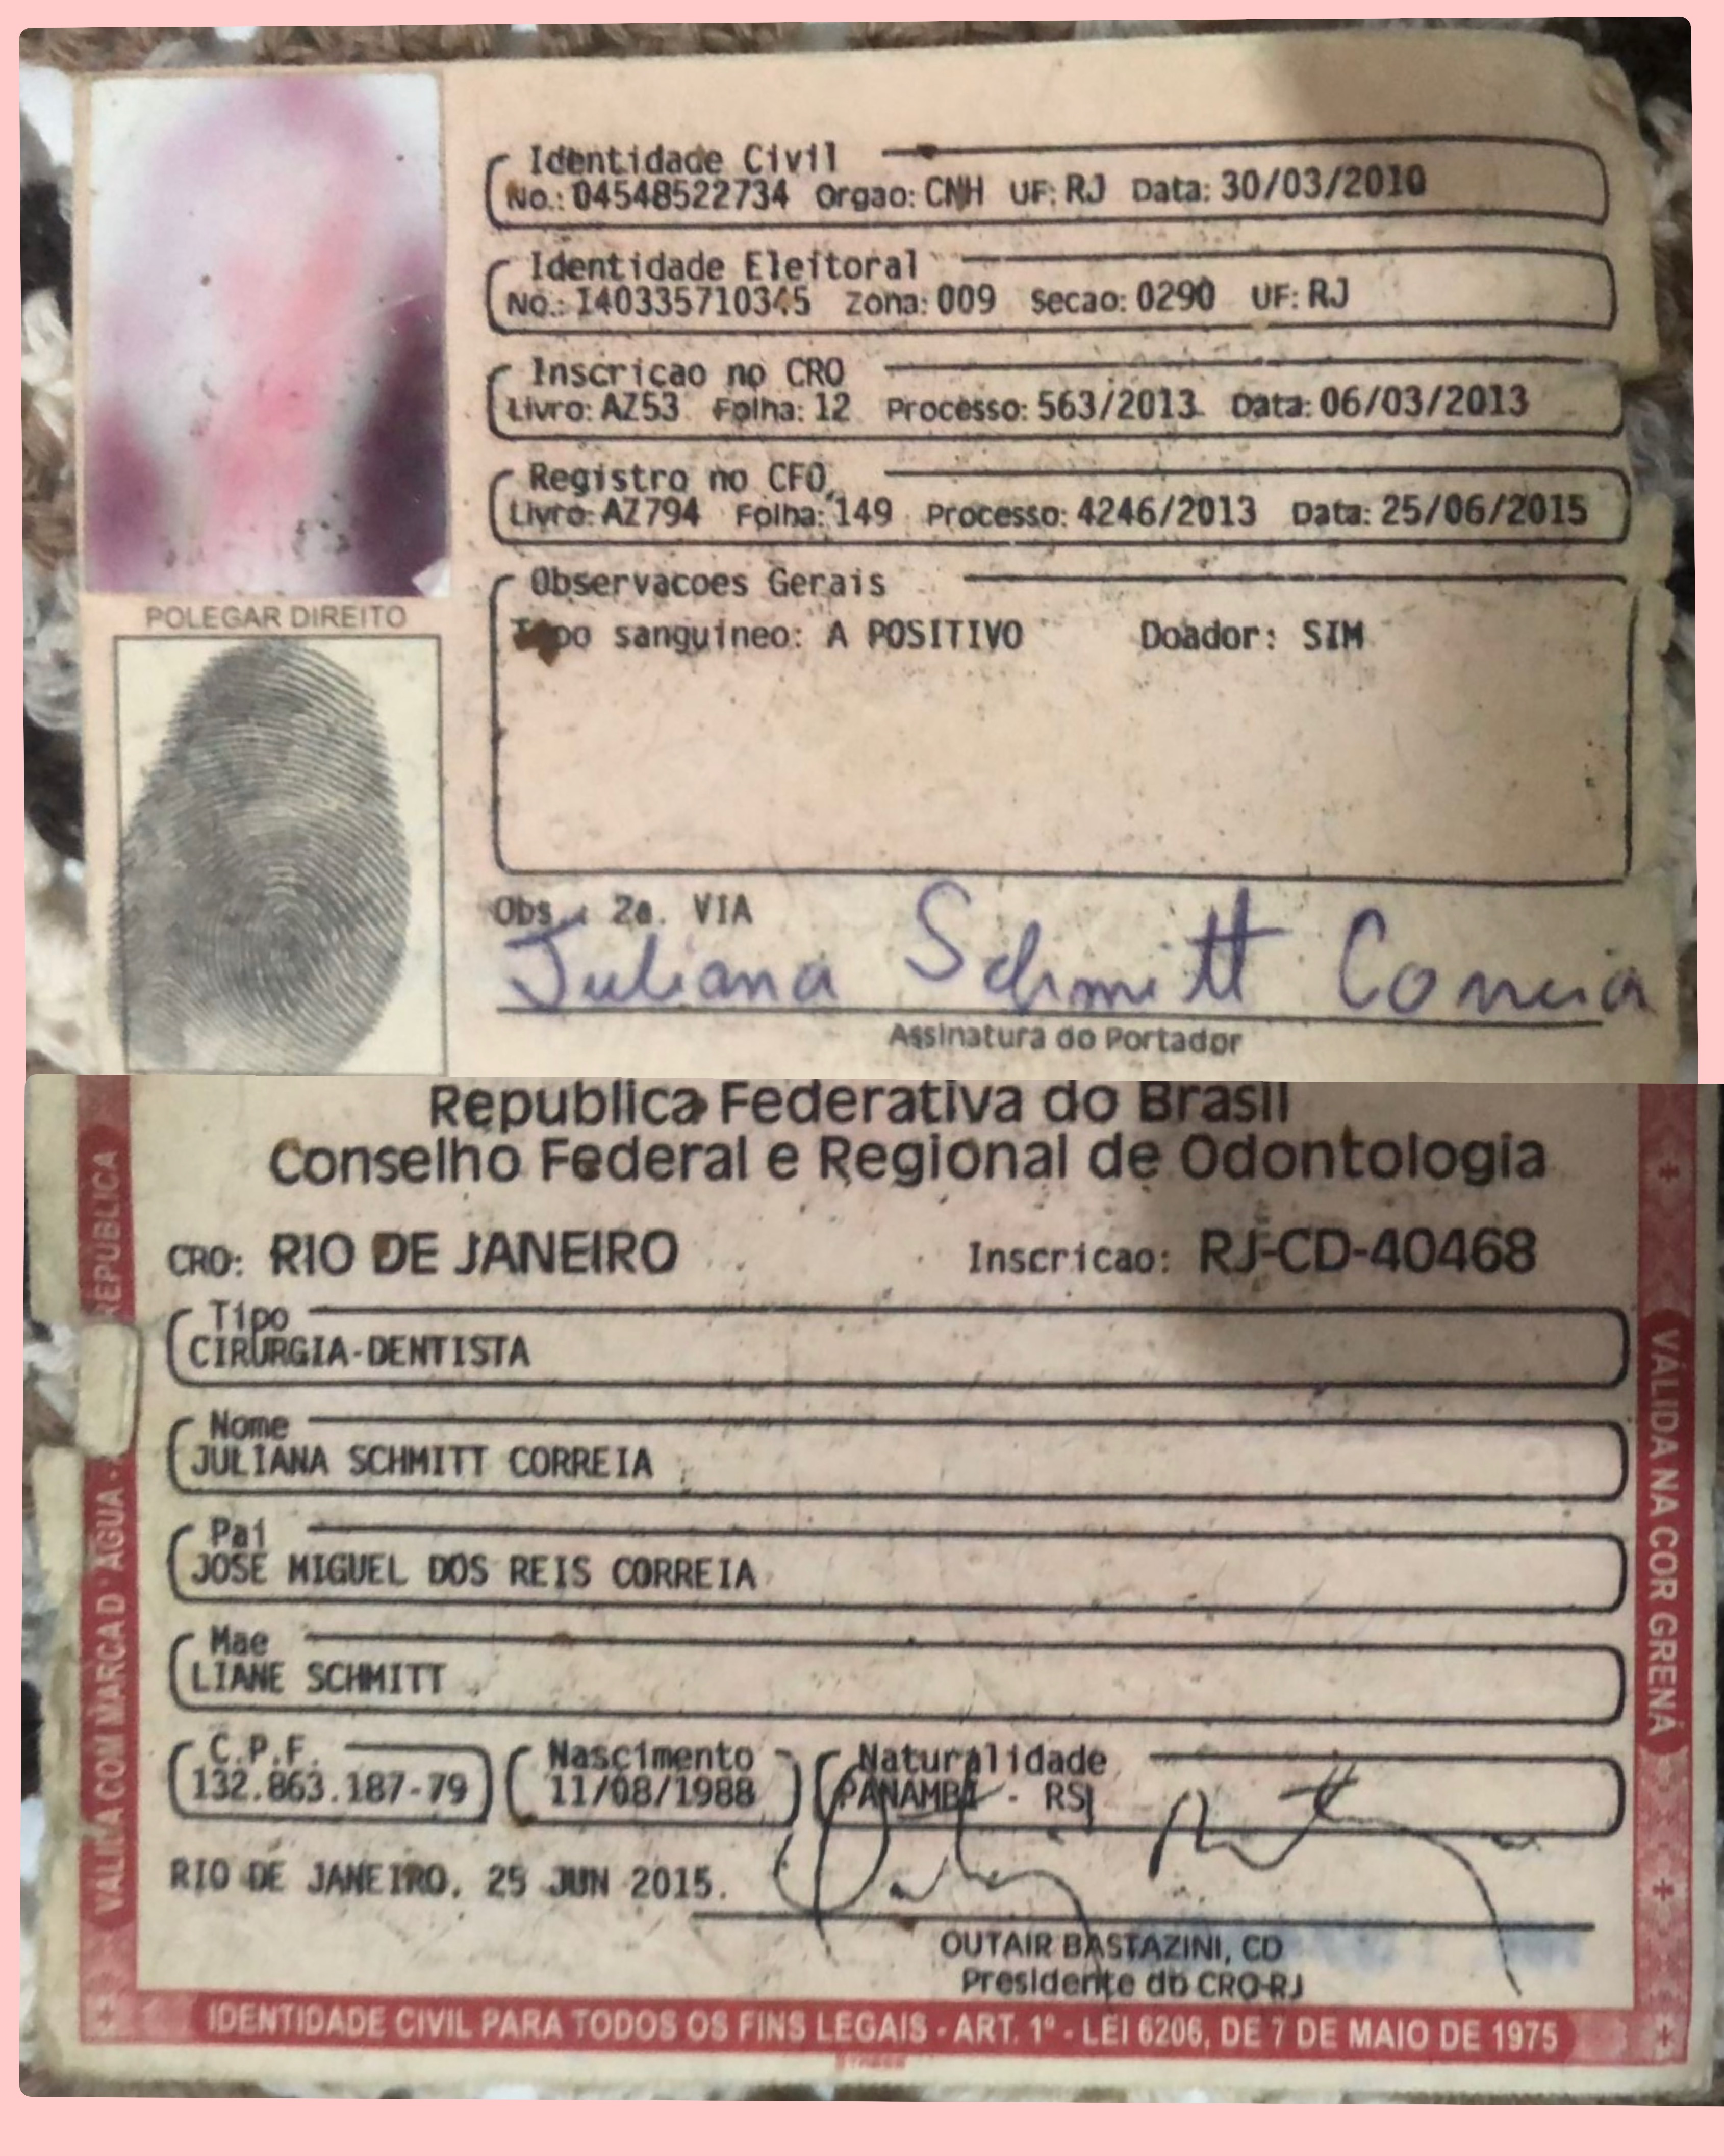 Identidade Civil
No.: 04548522734 Orgao: CNH UF: RJ Data: 30/03/2010
Identidade Eleitoral
No.: 140335710345 Zona: 009 Secao: 0290 UF: RJ
Inscricao no CRO
Livro: AZ53 Folha: 12 Processo: 563/2013 Data: 06/03/2013
Registro no CFO
Livro: AZ794 Folha: 149 Processo: 4246/2013 Data: 25/06/2015
Observacoes Gerais
Tipo sanguineo: A POSITIVO Doador: SIM
POLEGAR DIREITO
Obs.: 2a. VIA
Juliana Schmitt Correia
Assinatura do Portador
Republica Federativa do Brasil
Conselho Federal e Regional de Odontologia
CRO: RIO DE JANEIRO Inscricao: RJ-CD-40468
Tipo
CIRURGIA-DENTISTA
Nome
JULIANA SCHMITT CORREIA
Pai
JOSE MIGUEL DOS REIS CORREIA
Mae
LIANE SCHMITT
C.P.F. Nascimento Naturalidade
132.863.187-79 11/08/1988 PANAMBI - RS
RIO DE JANEIRO, 25 JUN 2015.
OUTAIR BASTAZINI, CD
Presidente do CRO-RJ
VALIDA COM MARCA D'AGUA - REPUBLICA
VÁLIDA NA COR GRENÁ
IDENTIDADE CIVIL PARA TODOS OS FINS LEGAIS - ART. 1º - LEI 6206, DE 7 DE MAIO DE 1975